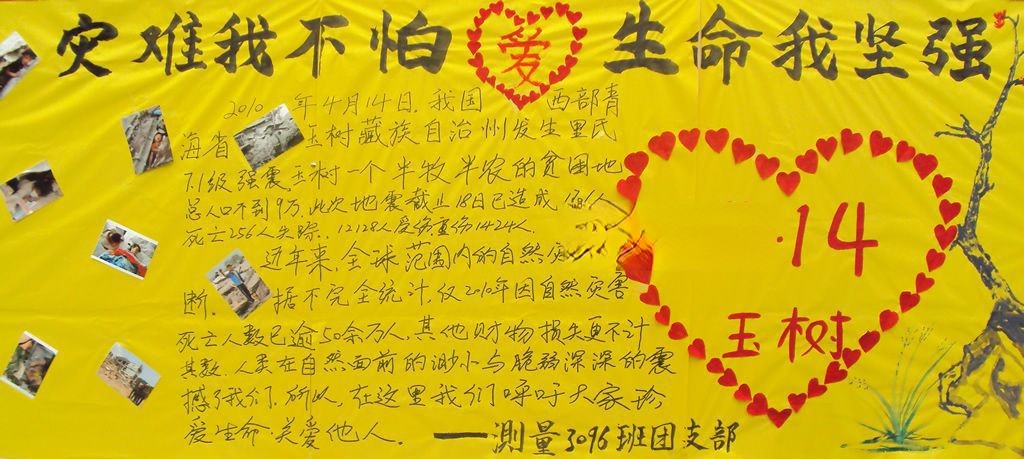 灾难我不怕 爱 生命我坚强
2010 年4月14日,我国 西部青
海省 玉树藏族自治州发生里氏
7.1级强震,玉树一个半牧半农的贫困地
总人口不到9万,此次地震截止18日已造成 人
死亡256人失踪,12128人受伤重伤1424人.
近年来,全球范围内的自然灾
断. 据不完全统计,仅2010年因自然灾害
死亡人数已逾50余万人,其他财物损失更不计
其数,人类在自然面前的渺小与脆弱深深的震
撼了我们,所以,在这里我们呼吁大家珍
爱生命·关爱他人.
——测量3096班团支部
·14
玉树